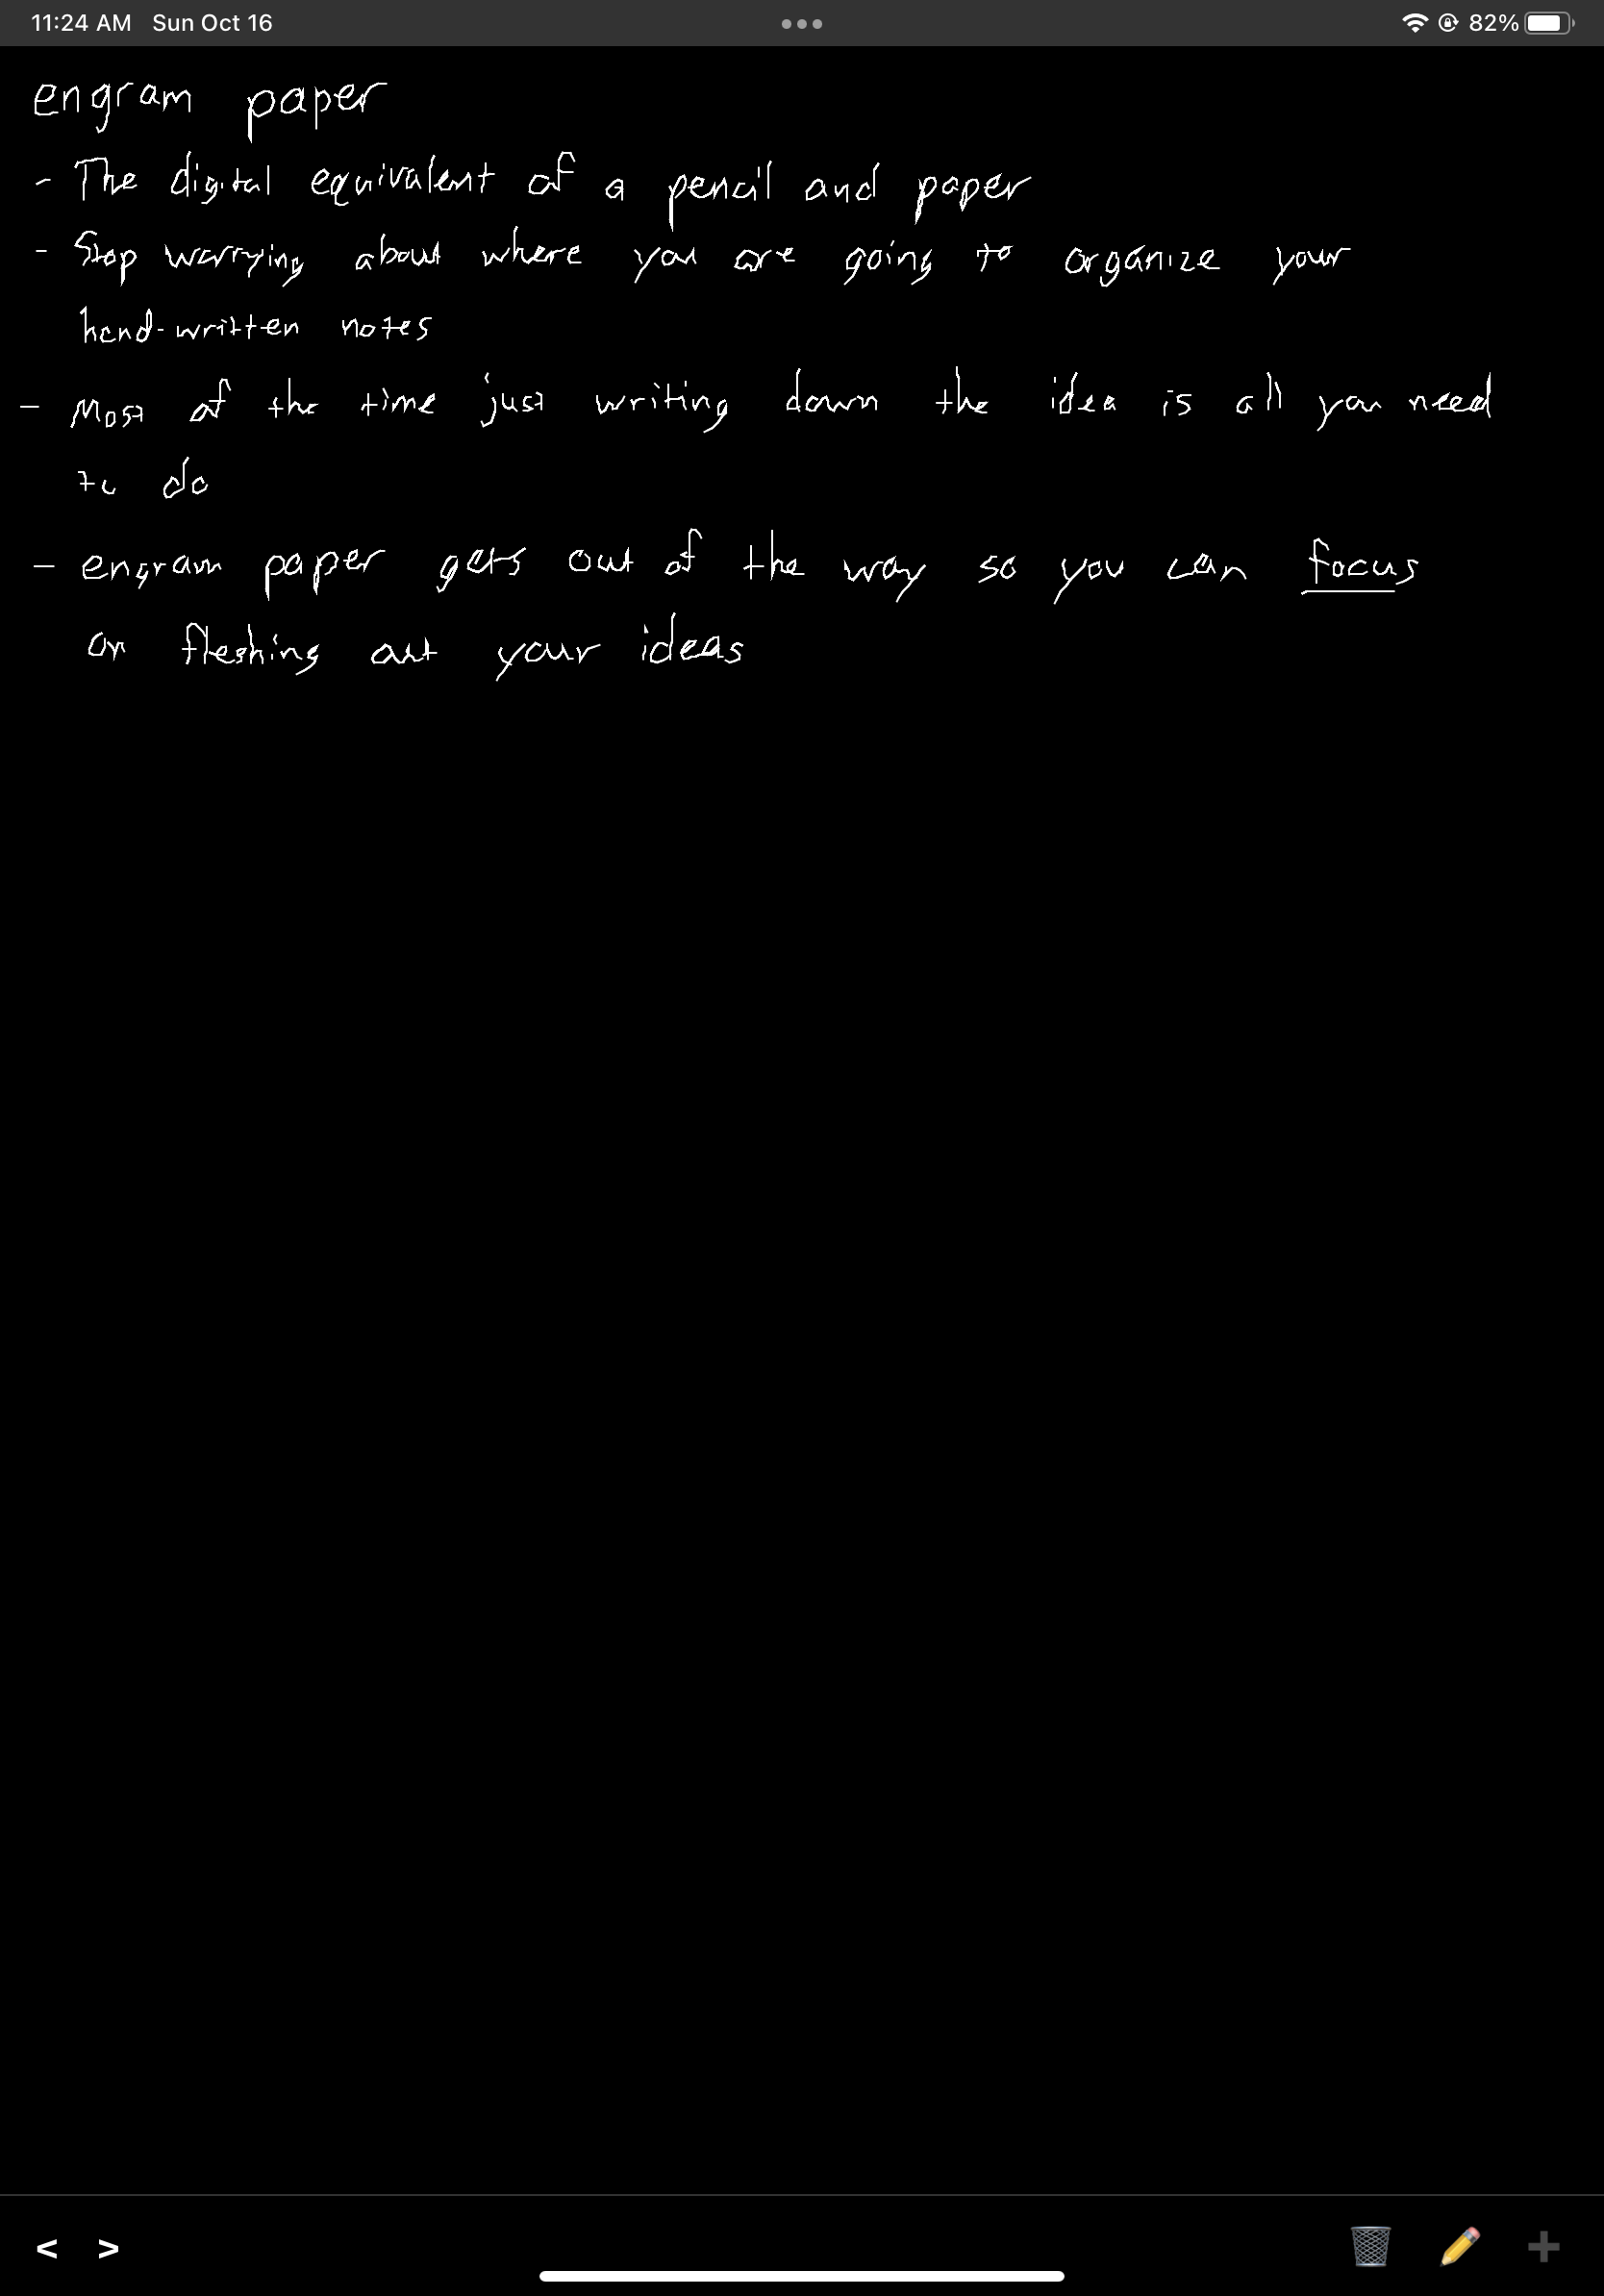 11:24 AM Sun Oct 16 82%
engram paper
- The digital equivalent of a pencil and paper
- Stop worrying about where you are going to organize your
hand-written notes
- Most of the time just writing down the idea is all you need
to do
- engram paper gets out of the way so you can focus
on fleshing out your ideas
< >